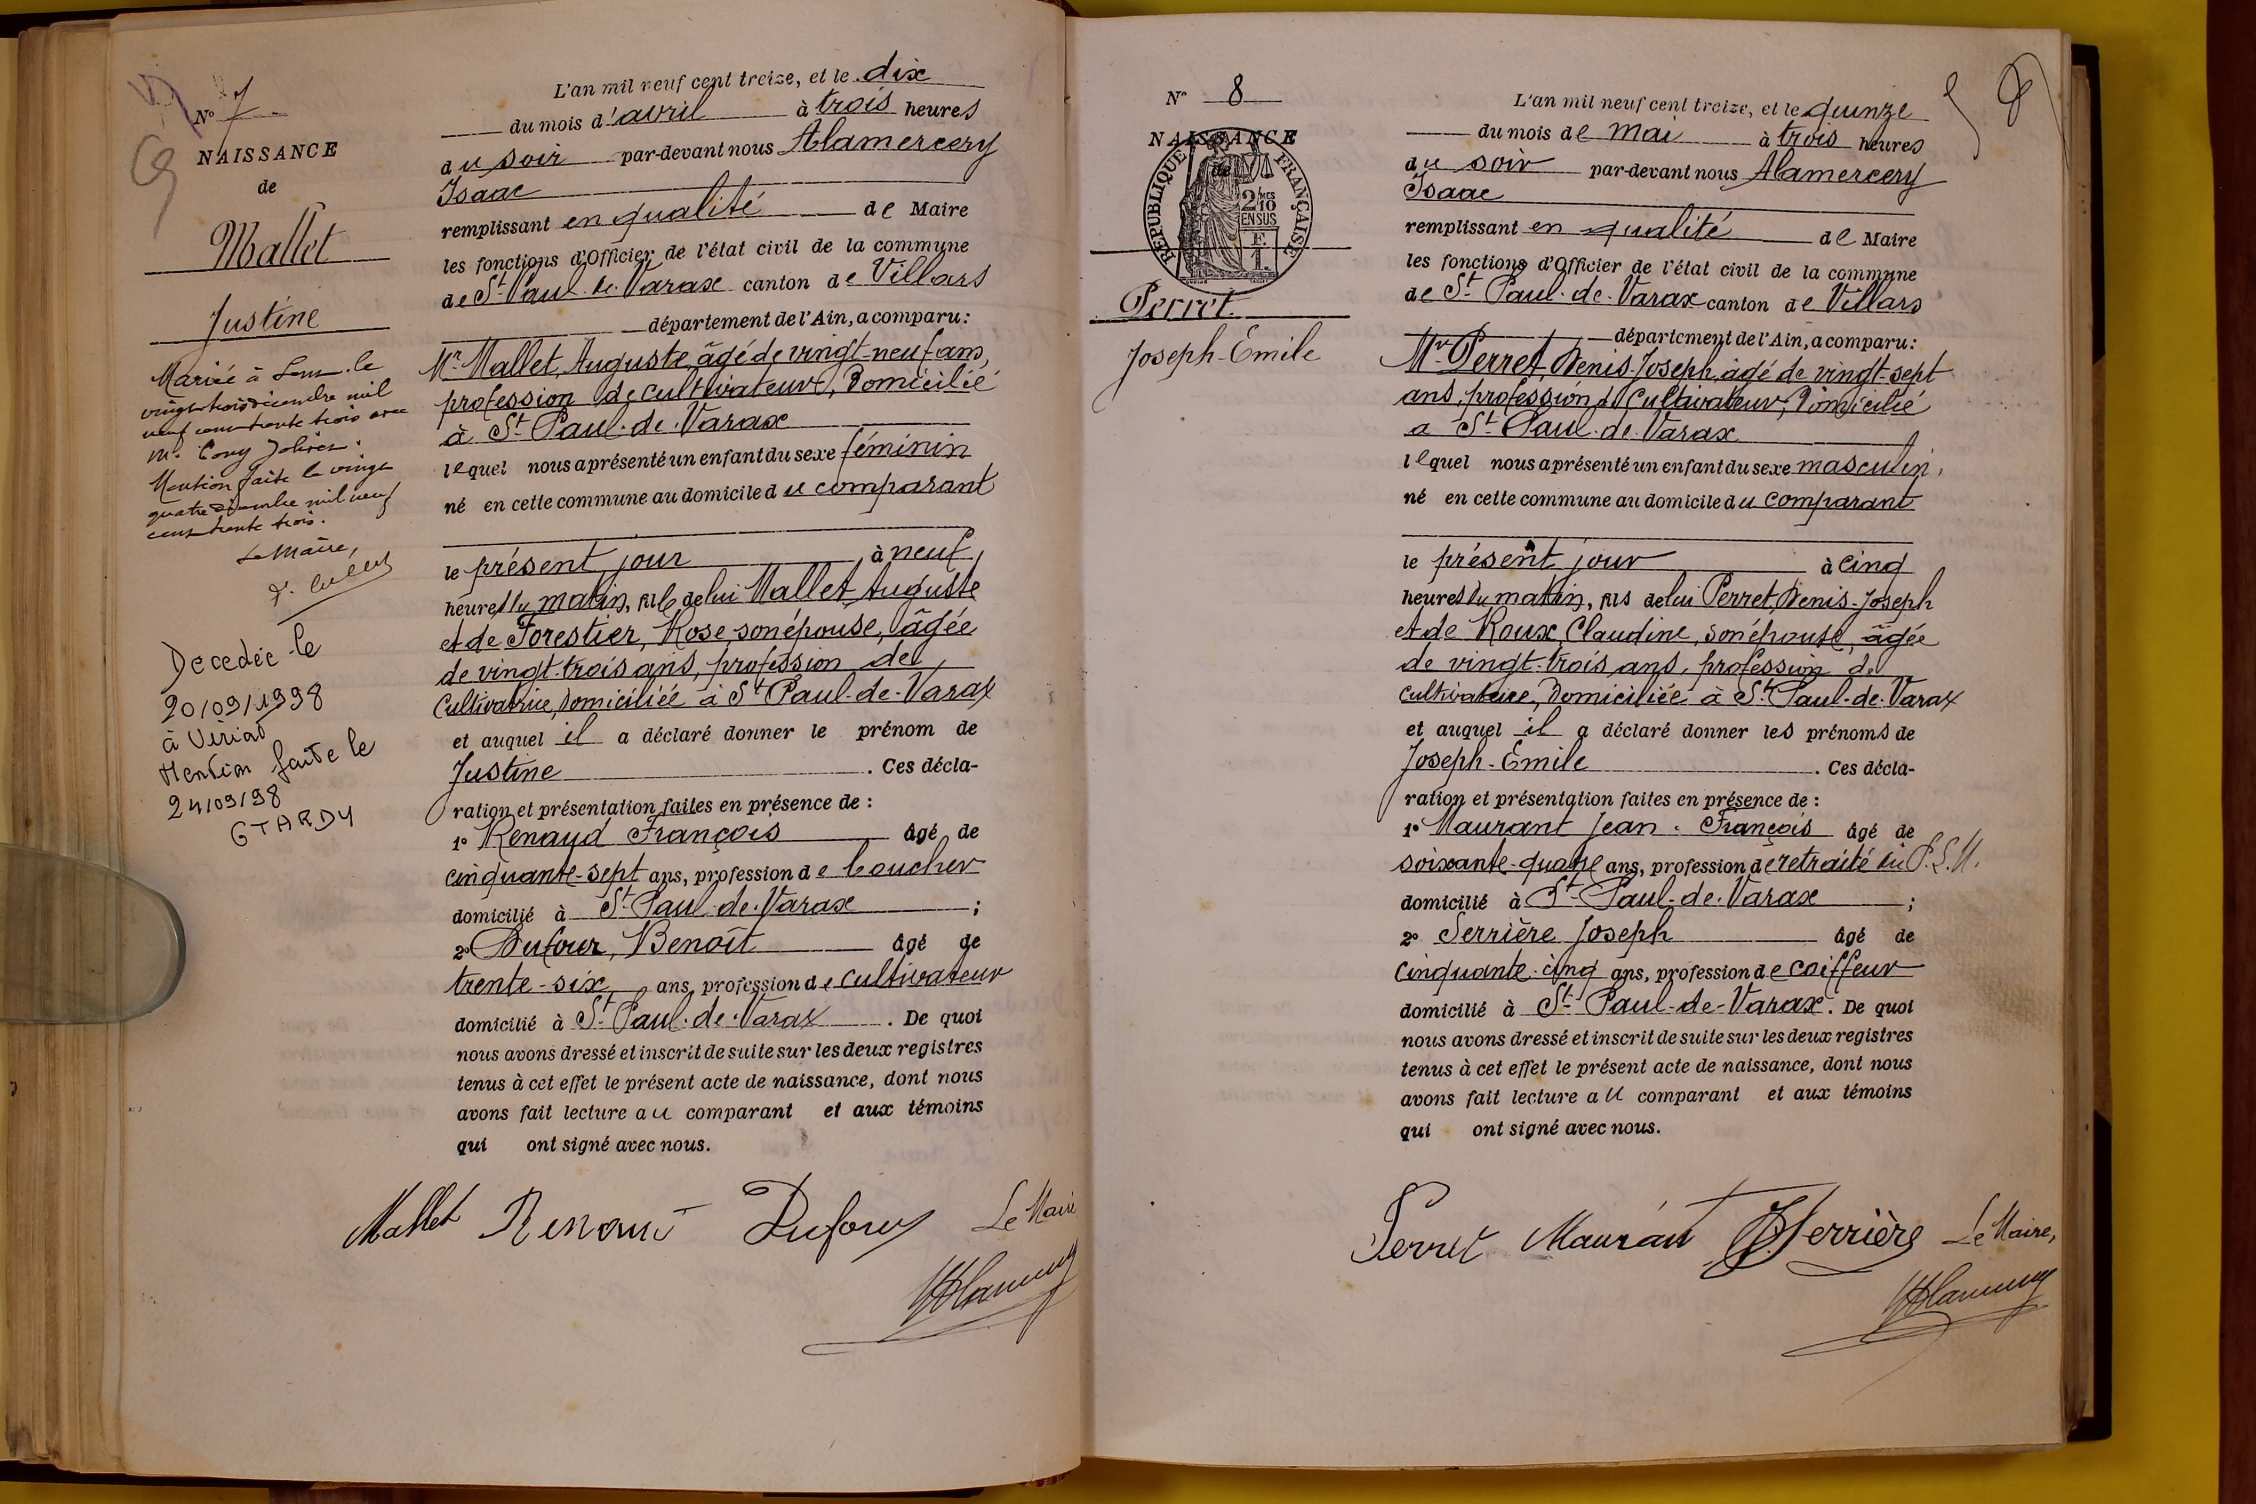 N° 7
NAISSANCE
de
Mallet
Justine
Mariée à le
vingt trois décembre mil
neuf cent trente trois avec
M.
Mention faite le vingt
quatre décembre mil neuf
cent trente trois.
Le Maire,
Decedée le
20/09/1998
à Viriat
Mention faite le
24/09/98
L'an mil neuf cent treize, et le dix
du mois d'avril à trois heures
du soir par-devant nous Alamercery
Isaac
remplissant en qualité de Maire
les fonctions d'Officier de l'état civil de la commune
de St Paul-de-Varax canton de Villars
département de l'Ain, a comparu:
Mr Mallet, Auguste, âgé de vingt-neuf ans,
profession de cultivateur, Domicilié
à St Paul-de-Varax
lequel nous a présenté un enfant du sexe féminin
né en cette commune au domicile du comparant
le présent jour à neuf
heures du matin, fille de lui Mallet, Auguste
et de Forestier, Rose, son épouse, âgée
de vingt-trois ans, profession de
cultivatrice, Domiciliée à St Paul-de-Varax
et auquel il a déclaré donner le prénom de
Justine. Ces décla-
ration et présentation faites en présence de :
1° Renaud François âgé de
cinquante-sept ans, profession de boucher
domicilié à St Paul-de-Varax ;
2° Dufour, Benoît âgé de
trente-six ans, profession de cultivateur
domicilié à St Paul-de-Varax. De quoi
nous avons dressé et inscrit de suite sur les deux registres
tenus à cet effet le présent acte de naissance, dont nous
avons fait lecture au comparant et aux témoins
qui ont signé avec nous.
Mallet Renaud Dufour Le Maire
N° 8
NAISSANCE
de
REPUBLIQUE FRANÇAISE
2/10 MES
EN SUS
Perret
Joseph-Emile
L'an mil neuf cent treize, et le quinze
du mois de mai à trois heures
du soir par-devant nous Alamercery
Isaac
remplissant en qualité de Maire
les fonctions d'Officier de l'état civil de la commune
de St Paul-de-Varax canton de Villars
département de l'Ain, a comparu:
Mr Perret, Denis-Joseph, âgé de vingt-sept
ans, profession de cultivateur, Domicilié
a St Paul-de-Varax
lequel nous a présenté un enfant du sexe masculin,
né en cette commune au domicile du comparant
le présent jour à cinq
heures du matin, fils de lui Perret, Denis-Joseph
et de Roux, Claudine, son épouse, âgée
de vingt-trois ans, profession de
cultivatrice, Domiciliée à St Paul-de-Varax
et auquel il a déclaré donner les prénoms de
Joseph-Emile. Ces décla-
ration et présentation faites en présence de :
1° Maurant Jean-François âgé de
soixante-quatre ans, profession de retraité du P.L.M.
domicilié à St Paul-de-Varax ;
2° Serrière Joseph âgé de
cinquante-cinq ans, profession de coiffeur
domicilié à St Paul-de-Varax. De quoi
nous avons dressé et inscrit de suite sur les deux registres
tenus à cet effet le présent acte de naissance, dont nous
avons fait lecture au comparant et aux témoins
qui ont signé avec nous.
Perret Maurant Serrière Le Maire,